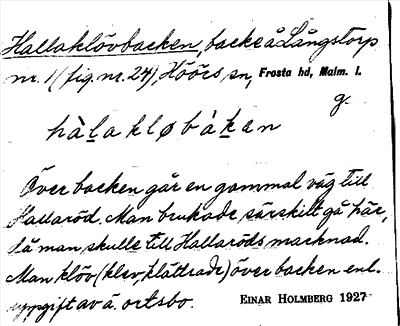 Hallaklövbacken, backe å Långstorp
nr. 1 (fig. nr. 24), Höörs sn, Frosta hd, Malm. l.
g.
hàlakløbákan
Över backen går en gammal väg till
Hallaröd. Man brukade särskilt gå här,
då man skulle till Hallaröds marknad.
Man klöv (klev, klättrade) över backen enl.
uppgift av å. ortsbo. EINAR HOLMBERG 1927